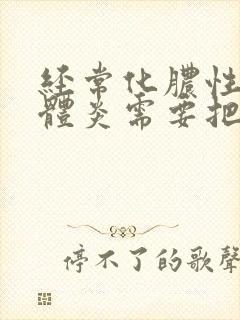 經常化膿性
體炎需要把
停不了的歌聲